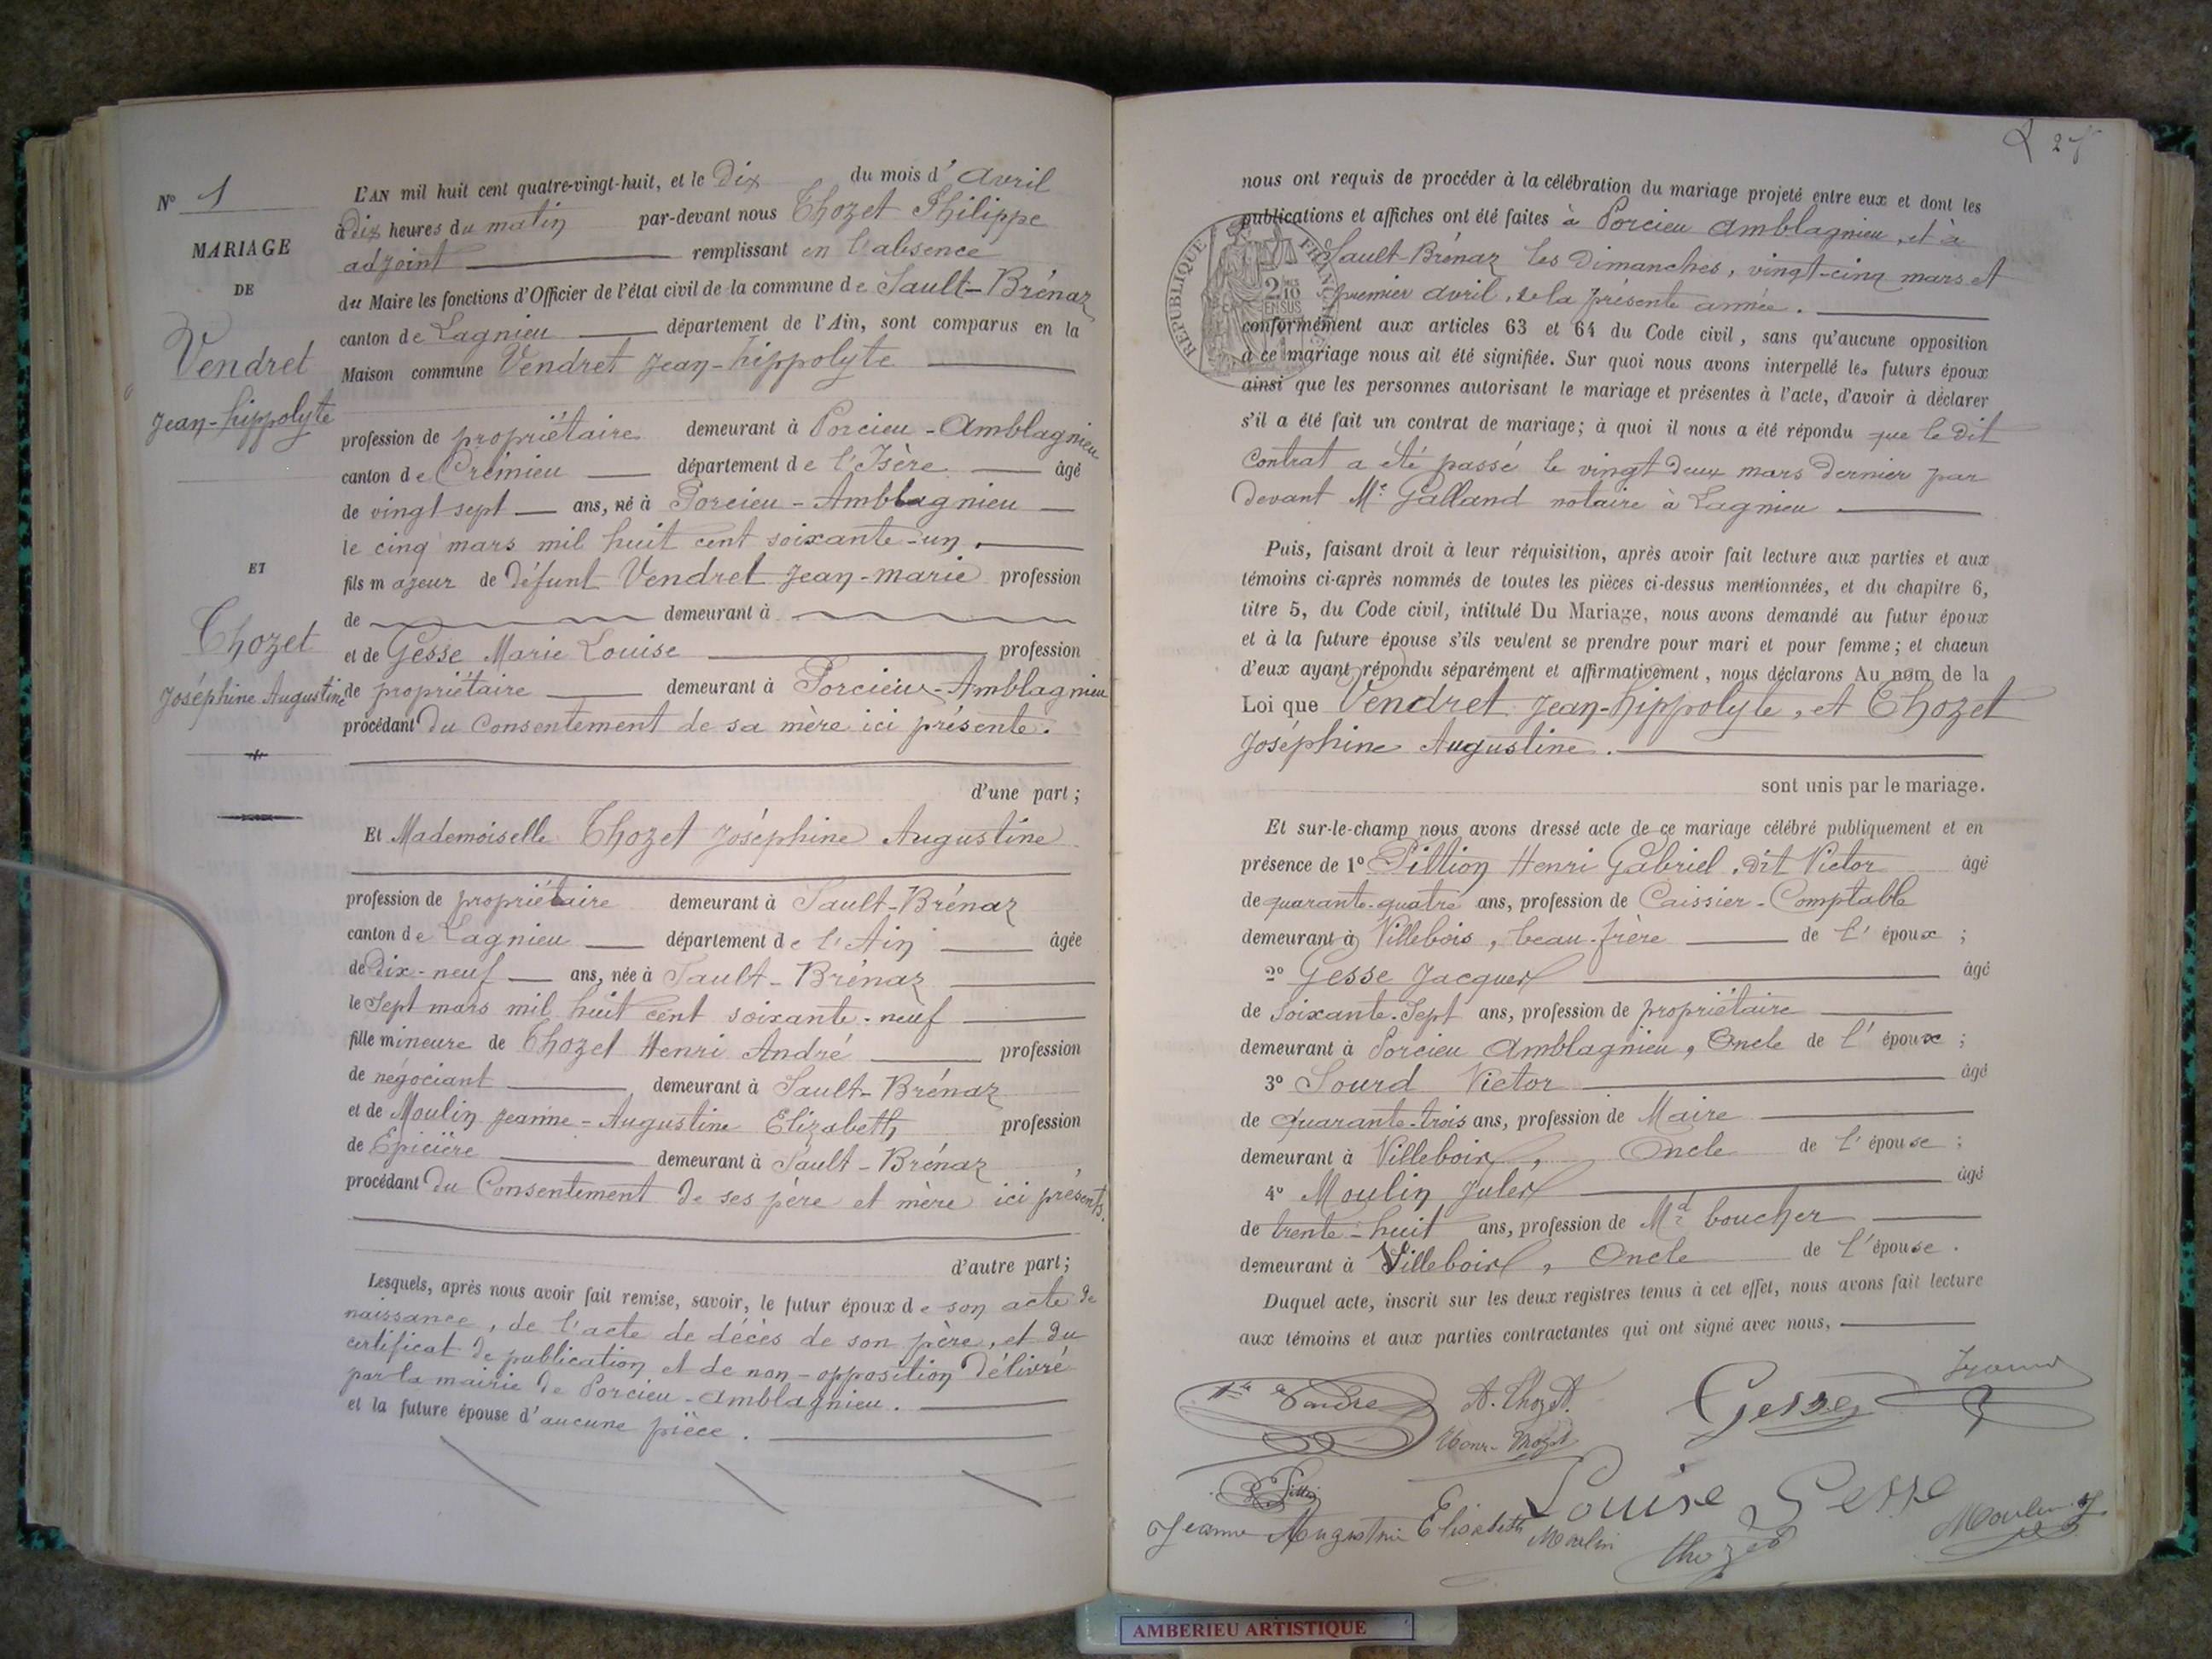 N° 1
MARIAGE
DE
Vendret
Jean-hippolyte
ET
Thozet
Joséphine Augustine
L'AN mil huit cent quatre-vingt-huit, et le Dix du mois d'avril
à Dix heures du matin par-devant nous Thozet Philippe
adjoint remplissant en l'absence
du Maire les fonctions d'Officier de l'état civil de la commune de Sault-Brénaz
canton de Lagnieu département de l'Ain, sont comparus en la
Maison commune Vendret Jean-hippolyte
profession de propriétaire demeurant à Porcieu-Amblagnieu
canton de Crémieu département de l'Isère âgé
de vingt sept ans, né à Porcieu-Amblagnieu
le cinq mars mil huit cent soixante-un.
fils majeur de défunt Vendret Jean-marie profession
de demeurant à
et de Gesse Marie Louise profession
de propriétaire demeurant à Porcieu-Amblagnieu
procédant du Consentement de sa mère ici présente.
d'une part;
Et Mademoiselle Thozet Joséphine Augustine
profession de propriétaire demeurant à Sault-Brénaz
canton de Lagnieu département de l'Ain âgée
de Dix-neuf ans, née à Sault-Brénaz
le Sept mars mil huit cent soixante-neuf
fille mineure de Thozet Henri André profession
de négociant demeurant à Sault-Brénaz
et de Moulin Jeanne-Augustine Elizabeth profession
de Epicière demeurant à Sault-Brénaz
procédant du Consentement de ses père et mère ici présents.
d'autre part;
Lesquels, après nous avoir fait remise, savoir, le futur époux de son acte de
naissance, de l'acte de décès de son père, et du
certificat de publication et de non-opposition délivré
par la mairie de Porcieu-Amblagnieu.
et la future épouse d'aucune pièce.
nous ont requis de procéder à la célébration du mariage projeté entre eux et dont les
publications et affiches ont été faites à Porcieu Amblagnieu, et à
Sault-Brénaz les Dimanches, vingt-cinq mars et
premier avril, de la présente année.
RÉPUBLIQUE FRANÇAISE
2/10 EN SUS
conformément aux articles 63 et 64 du Code civil, sans qu'aucune opposition
à ce mariage nous ait été signifiée. Sur quoi nous avons interpellé les futurs époux
ainsi que les personnes autorisant le mariage et présentes à l'acte, d'avoir à déclarer
s'il a été fait un contrat de mariage; à quoi il nous a été répondu que le dit
Contrat a été passé le vingt deux mars dernier par
devant Me Galland notaire à Lagnieu.
Puis, faisant droit à leur réquisition, après avoir fait lecture aux parties et aux
témoins ci-après nommés de toutes les pièces ci-dessus mentionnées, et du chapitre 6,
titre 5, du Code civil, intitulé Du Mariage, nous avons demandé au futur époux
et à la future épouse s'ils veulent se prendre pour mari et pour femme; et chacun
d'eux ayant répondu séparément et affirmativement, nous déclarons Au nom de la
Loi que Vendret Jean-hippolyte, et Thozet
Joséphine Augustine.
sont unis par le mariage.
Et sur-le-champ nous avons dressé acte de ce mariage célébré publiquement et en
présence de 1° Pittion Henri Gabriel, dit Victor âgé
de quarante-quatre ans, profession de Caissier-Comptable
demeurant à Villebois, beau-frère de l'époux;
2° Gesse Jacques âgé
de Soixante-Sept ans, profession de propriétaire
demeurant à Porcieu Amblagnieu, Oncle de l'époux;
3° Sourd Victor âgé
de Quarante-trois ans, profession de Maire
demeurant à Villebois, Oncle de l'épouse;
4° Moulin Jules âgé
de trente-huit ans, profession de Md boucher
demeurant à Villebois, Oncle de l'épouse.
Duquel acte, inscrit sur les deux registres tenus à cet effet, nous avons fait lecture
aux témoins et aux parties contractantes qui ont signé avec nous,
A. Thozet Gesse
Louise Gesse Moulin J
Jeanne Augustine Elisabeth Moulin Thozet
AMBERIEU ARTISTIQUE